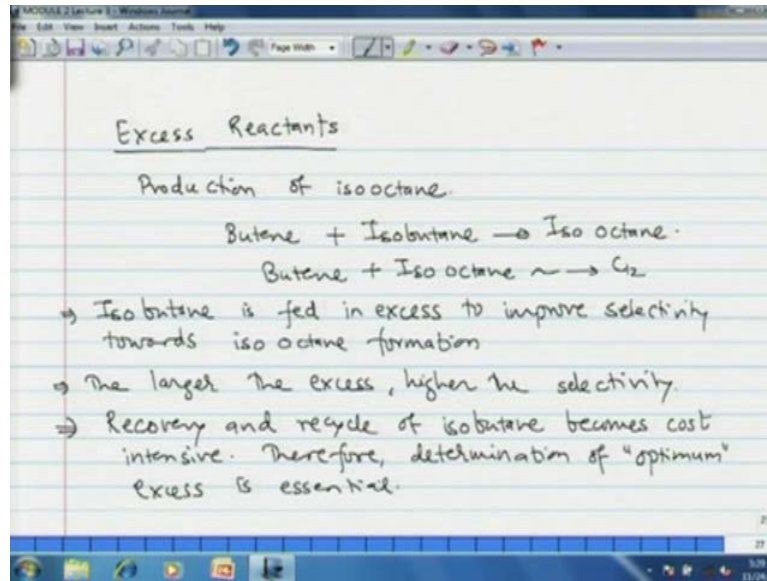 MODULE 2 Lecture 3 - Windows Journal
File Edit View Insert Actions Tools Help
Page Width
Excess Reactants
Production of isooctane.
Butene + Isobutane → Iso octane.
Butene + Iso octane ~→ C12
⇒ Isobutane is fed in excess to improve selectivity
towards iso octane formation
⇒ The larger the excess, higher the selectivity.
⇒ Recovery and recycle of isobutane becomes cost
intensive. Therefore, determination of "optimum"
excess is essential.
27